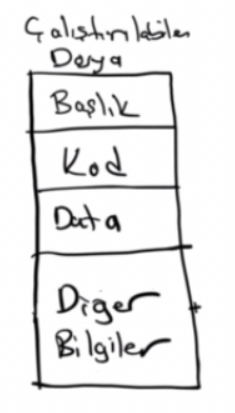 Çalıştırılabilen
Dosya
Başlık
Kod
Data
Diğer
Bilgiler